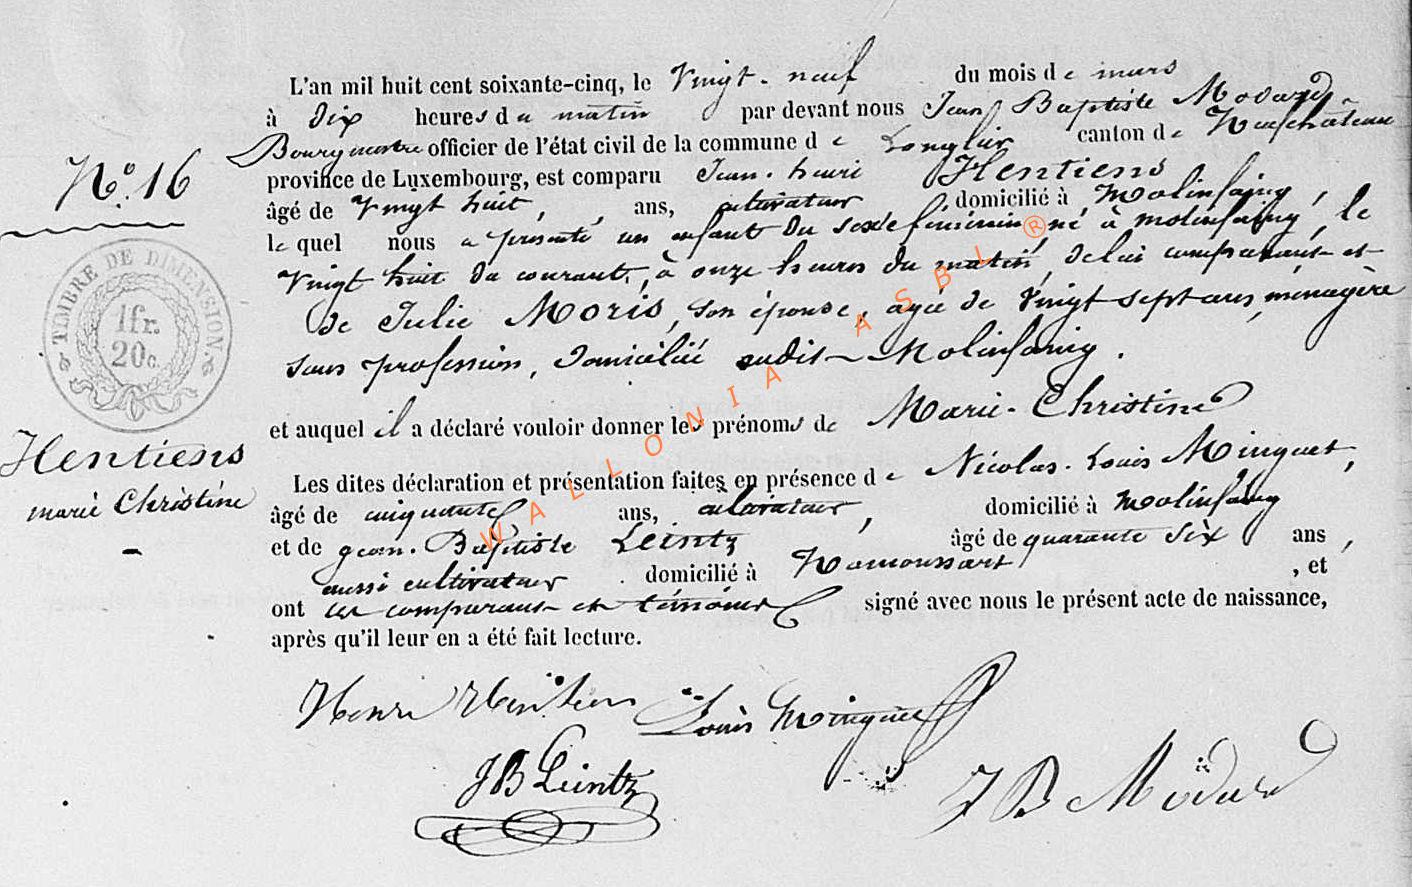 L'an mil huit cent soixante-cinq, le Vingt-neuf du mois de mars
à Dix heures du matin par devant nous Jean Baptiste Modard,
Bourgmestre officier de l'état civil de la commune de Longlier canton de Neufchâteau
N.º 16
province de Luxembourg, est comparu Jean-henri Hentiens
âgé de Vingt huit, ans, cultivateur domicilié à Molinfaing,
lequel nous a présenté un enfant du sexe féminin né à molinfaing, le
vingt huit du courant, à onze heures du matin, de lui comparant et
de Julie Moris, son épouse, agée de vingt sept ans, ménagère
sans profession, domiciliée audit Molinfaing.
TIMBRE DE DIMENSION.
1fr.
20c.
et auquel il a déclaré vouloir donner les prénoms de Marie-Christine
Hentiens
marie Christine
Les dites déclaration et présentation faites en présence de Nicolas-Louis Minguet,
âgé de cinquante ans, cultivateur, domicilié à Molinfaing
et de jean-Baptiste Leintz âgé de quarante six ans,
aussi cultivateur domicilié à Namoussart, et
ont les comparant et témoins signé avec nous le présent acte de naissance,
après qu'il leur en a été fait lecture.
Henri Hentiens Louis Minguet
JB Leintz
JB Modard
WALLONIA ASBL ®